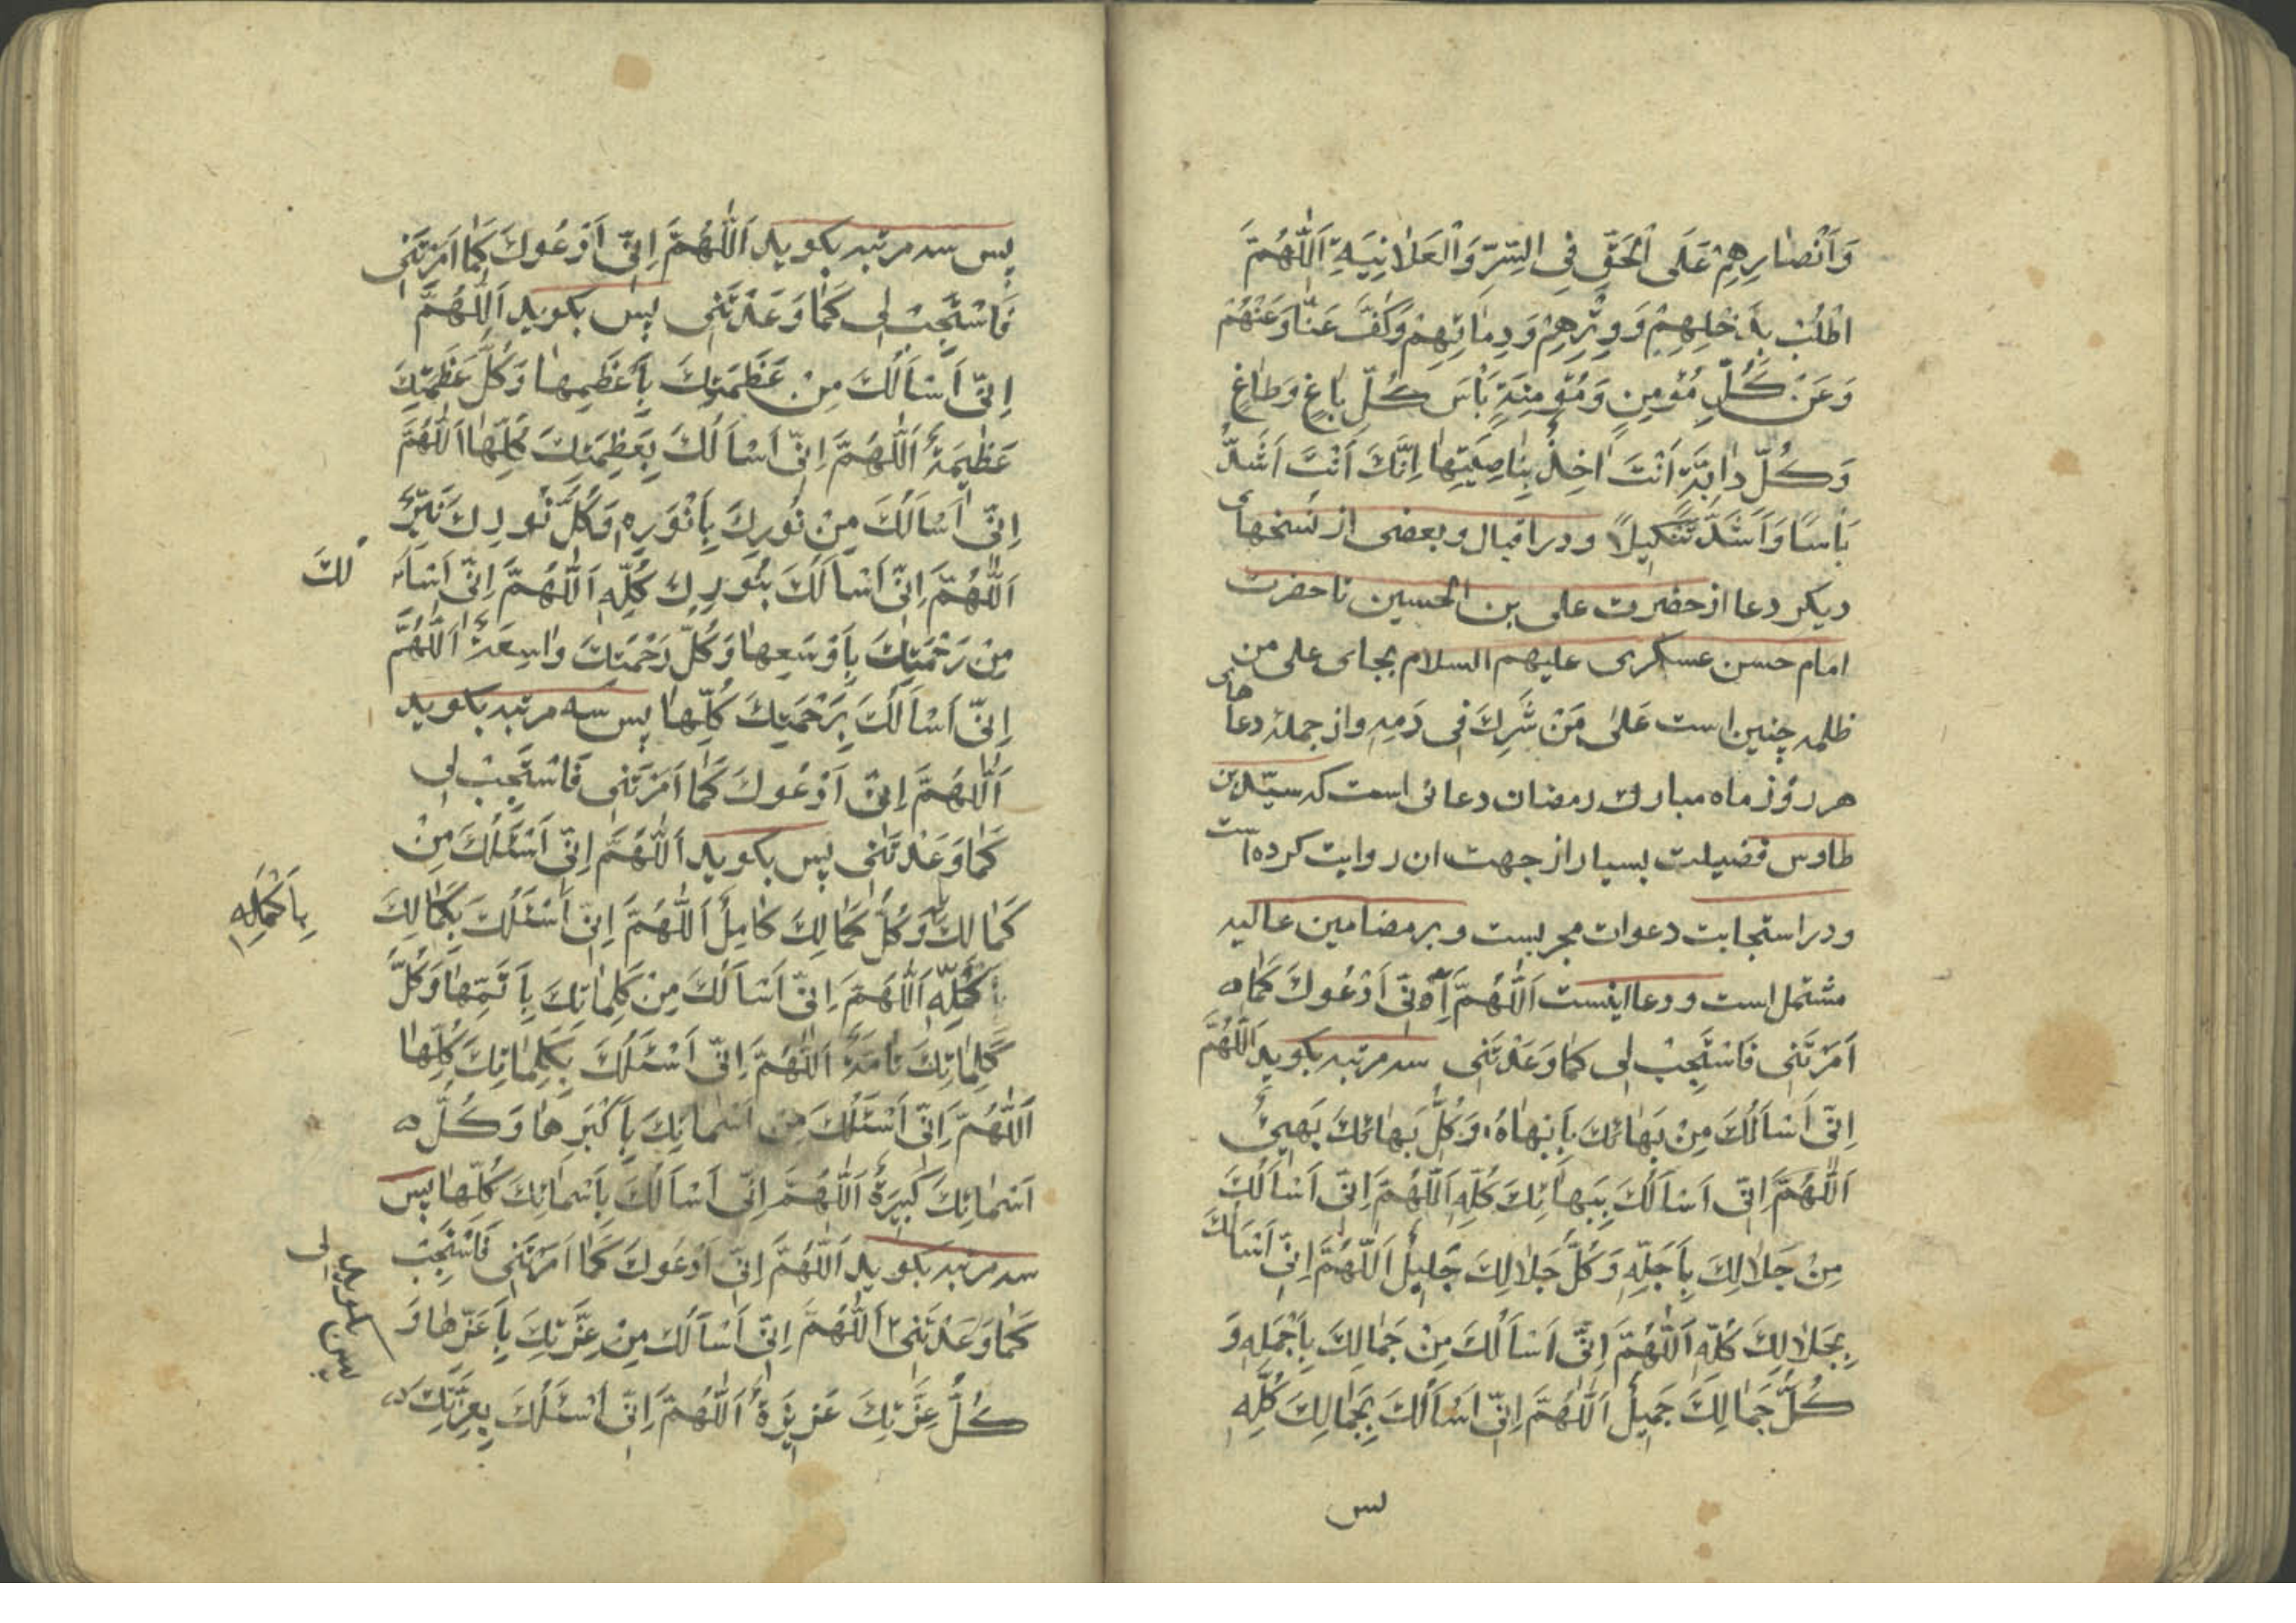 وَاَنْصٰارِهِمْ عَلَى الْحَقِّ فِى السِّرِّ وَالْعَلٰانِيَةِ اَللّٰهُمَّ
اطْلُبْ بِذَحْلِهِمْ وَوِتْرِهِمْ وَدِمٰائِهِمْ وَكُفَّ عَنّٰا وَعَنْهُمْ
وَعَنْ كُلِّ مُؤْمِنٍ وَمُؤْمِنَةٍ بَأْسَ كُلِّ بٰاغٍ وَطٰاغٍ
وَكُلِّ دٰابَّةٍ اَنْتَ اٰخِذٌ بِنٰاصِيَتِهٰا اِنَّكَ اَنْتَ اَشَدُّ
بَأْسًا وَاَشَدُّ تَنْكِيلاً ودر اقبال وبعضى از نسخهاى
ديكر دعا از حضرت على بن الحسين تا حضرت
امام حسن عسكرى عليهم السلام بجاى على من
ظلمه چنين است عَلىٰ مَنْ شَرِكَ فى دَمِهِ واز جملۀ دعاهاى
هر روز ماه مبارك رمضان دعائى است كه سيّد بن
طاوس فضيلت بسيار از جهت ان روايت كرده است
ودر استجابت دعوات مجربست وبر مضامين عاليه
مشتمل است ودعا اينست اَللّٰهُمَّ اِنّى اَدْعُوكَ كَمٰا
اَمَرْتَنى فَاسْتَجِبْ لى كَمٰا وَعَدْتَنى سه مرتبه بكويد اَللّٰهُمَّ
اِنّى اَسْاَلُكَ مِنْ بَهٰائِكَ بِاَبْهٰاهُ وَكُلُّ بَهٰائِكَ بَهِىٌّ
اَللّٰهُمَّ اِنّى اَسْاَلُكَ بِبَهٰائِكَ كُلِّهِ اَللّٰهُمَّ اِنّى اَسْاَلُكَ
مِنْ جَلٰالِكَ بِاَجَلِّهِ وَكُلُّ جَلٰالِكَ جَليلٌ اَللّٰهُمَّ اِنّى اَسْاَلُكَ
بِجَلٰالِكَ كُلِّهِ اَللّٰهُمَّ اِنّى اَسْاَلُكَ مِنْ جَمٰالِكَ بِاَجْمَلِهِ وَ
كُلُّ جَمٰالِكَ جَميلٌ اَللّٰهُمَّ اِنّى اَسْاَلُكَ بِجَمٰالِكَ كُلِّهِ
پس
پس سه مرتبه بكويد اَللّٰهُمَّ اِنّى اَدْعُوكَ كَمٰا اَمَرْتَنى
فَاسْتَجِبْ لى كَمٰا وَعَدْتَنى پس بكويد اَللّٰهُمَّ
اِنّى اَسْاَلُكَ مِنْ عَظَمَتِكَ بِاَعْظَمِهٰا وَكُلُّ عَظَمَتِكَ
عَظيمَةٌ اَللّٰهُمَّ اِنّى اَسْاَلُكَ بِعَظَمَتِكَ كُلِّهٰا اَللّٰهُمَّ
اِنّى اَسْاَلُكَ مِنْ نُورِكَ بِاَنْوَرِهِ وَكُلُّ نُورِكَ نَيِّرٌ
اَللّٰهُمَّ اِنّى اَسْاَلُكَ بِنُورِكَ كُلِّهِ اَللّٰهُمَّ اِنّى اَسْاَلُكَ
مِنْ رَحْمَتِكَ بِاَوْسَعِهٰا وَكُلُّ رَحْمَتِكَ وٰاسِعَةٌ اَللّٰهُمَّ
اِنّى اَسْاَلُكَ بِرَحْمَتِكَ كُلِّهٰا پس سه مرتبه بكويد
اَللّٰهُمَّ اِنّى اَدْعُوكَ كَمٰا اَمَرْتَنى فَاسْتَجِبْ لى
كَمٰا وَعَدْتَنى پس بكويد اَللّٰهُمَّ اِنّى اَسْئَلُكَ مِنْ
كَمٰالِكَ وَكُلُّ كَمٰالِكَ كٰامِلٌ اَللّٰهُمَّ اِنّى اَسْئَلُكَ بِكَمٰالِكَ
بِاَكْمَلِهِ
كُلِّهِ اَللّٰهُمَّ اِنّى اَسْاَلُكَ مِنْ كَلِمٰاتِكَ بِاَتَمِّهٰا وَكُلُّ
كَلِمٰاتِكَ تٰامَّةٌ اَللّٰهُمَّ اِنّى اَسْئَلُكَ بِكَلِمٰاتِكَ كُلِّهٰا
اَللّٰهُمَّ اِنّى اَسْئَلُكَ مِنْ اَسْمٰائِكَ بِاَكْبَرِهٰا وَكُلُّ
اَسْمٰائِكَ كَبيرَةٌ اَللّٰهُمَّ اِنّى اَسْاَلُكَ بِاَسْمٰائِكَ كُلِّهٰا پس
سه مرتبه بكويد اَللّٰهُمَّ اِنّى اَدْعُوكَ كَمٰا اَمَرْتَنى فَاسْتَجِبْ لى
كَمٰا وَعَدْتَنى اَللّٰهُمَّ اِنّى اَسْاَلُكَ مِنْ عِزَّتِكَ بِاَعَزِّهٰا وَ
پس بكويد
كُلُّ عِزَّتِكَ عَزيزَةٌ اَللّٰهُمَّ اِنّى اَسْئَلُكَ بِعِزَّتِكَ